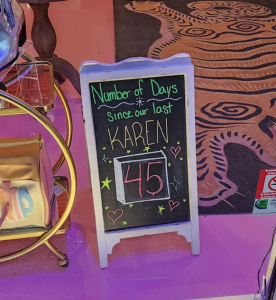 Number of Days
since our last
KAREN
45